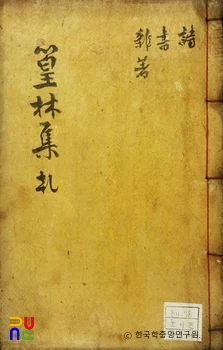 詩
書
雜著
篁林集
© 한국학중앙연구원